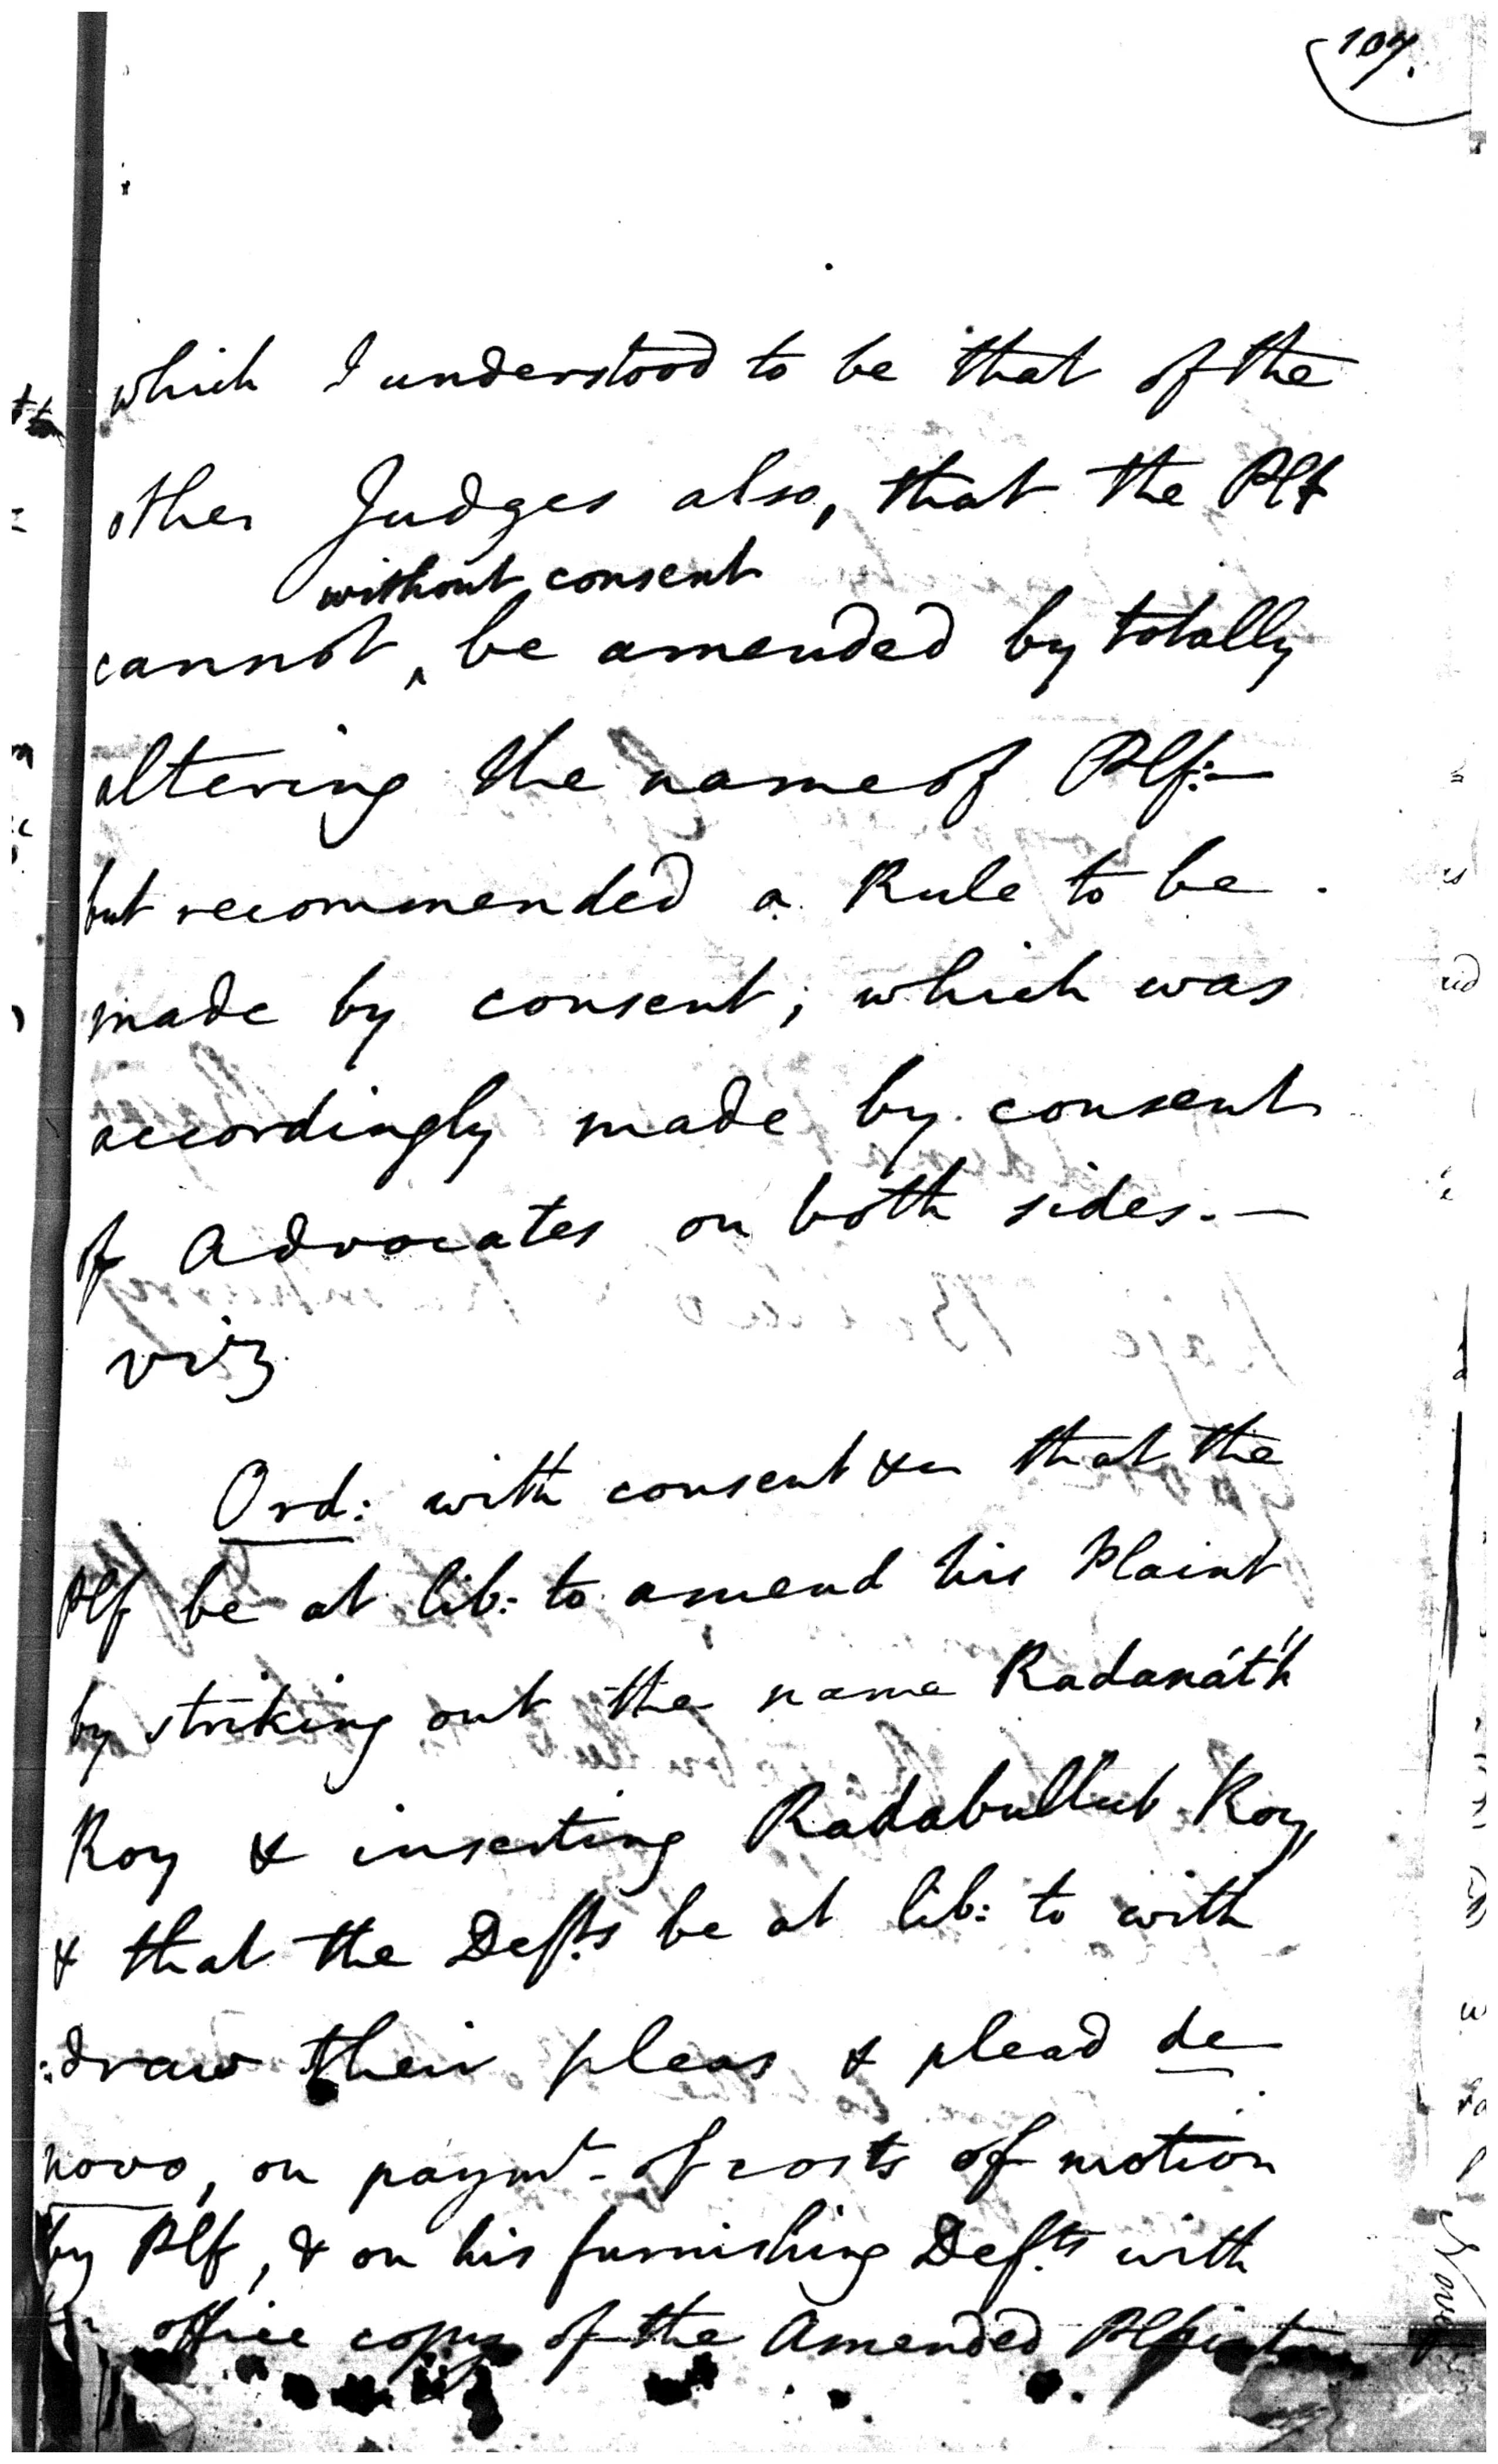 107.
which I understood to be that of the
other Judges also, that the Plf
without consent
cannot ‸ be amended by totally
altering the name of Plf:—
but recommended a Rule to be
made by consent; which was
accordingly made by consent
of Advocates on both sides.—
viz
Ord: with consent &c that the
Plf be at lib: to amend his Plaint
by striking out the name Radanáth
Roy & inserting Radabullub Roy,
& that the Defts be at lib: to with
:draw their pleas & plead de
novo, on paymt of costs of motion
by Plf, & on his furnishing Defts with
office copy of the Amended Plaint